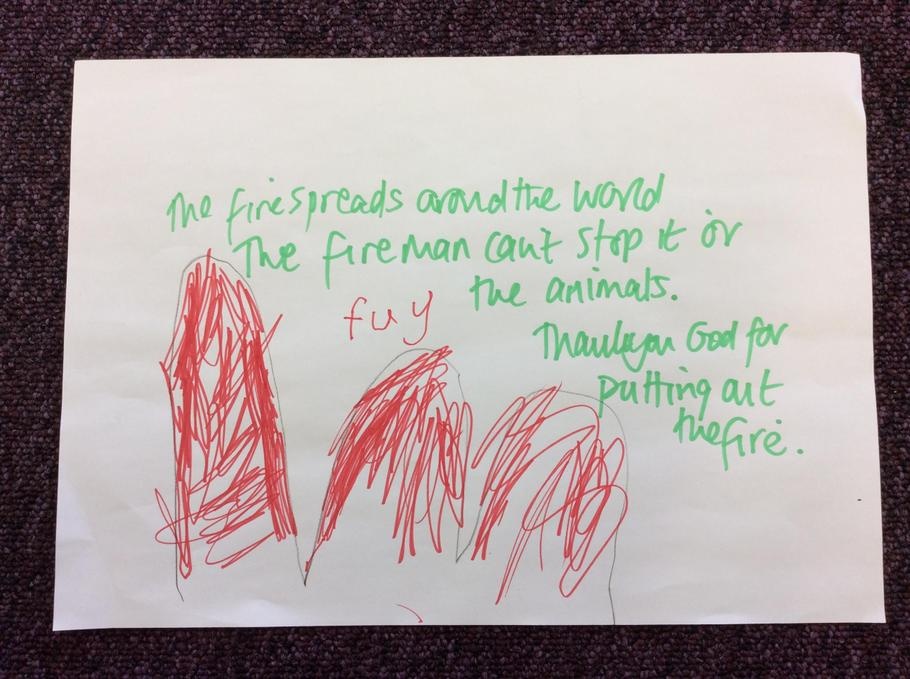 The fire spreads around the world
The fireman can't stop it or
the animals.
fuy
Thankyou God for
putting out
the fire.